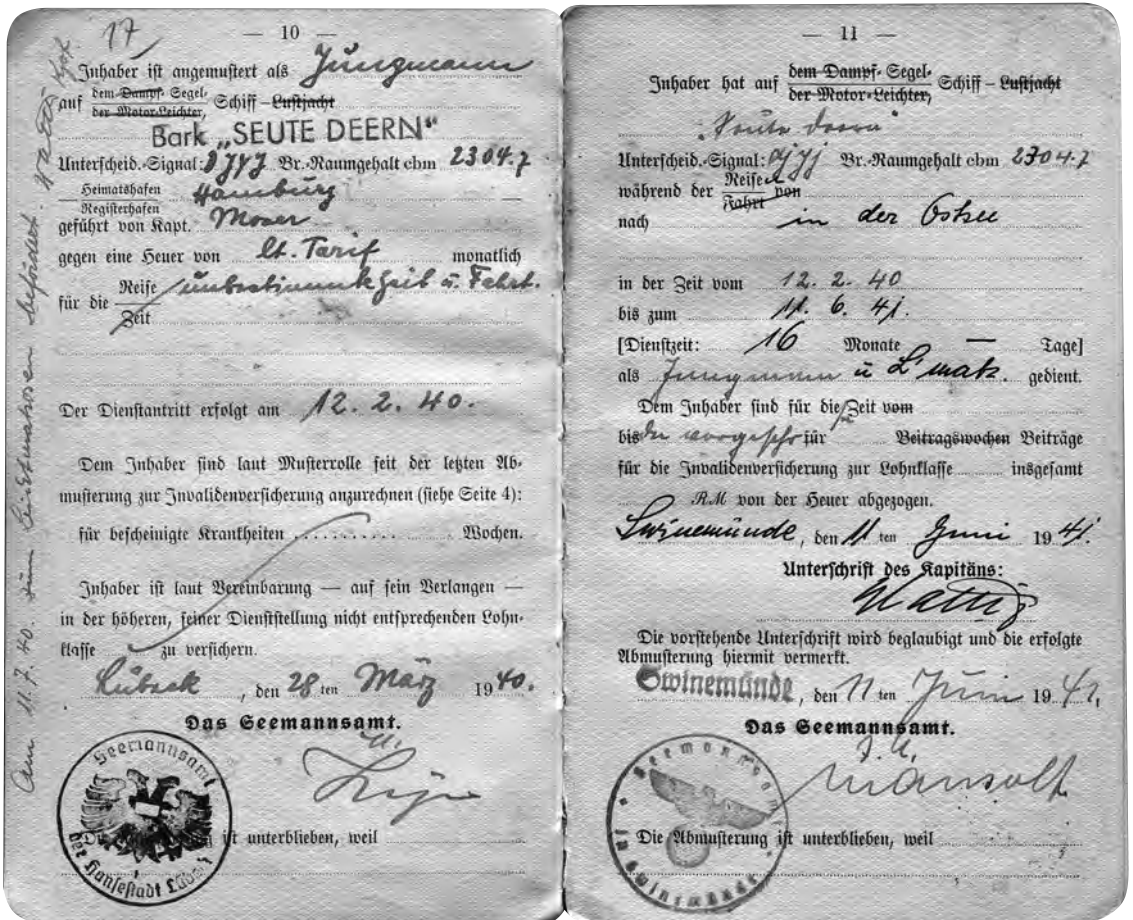 17
— 10 —
Inhaber ist angemustert als Jungmann
auf dem Dampf- Segel- Schiff – Lustjacht
der Motor-Leichter,
Bark „SEUTE DEERN“
Unterscheid.-Signal: DJYJ Br.-Raumgehalt cbm 2304.7
Heimatshafen Hamburg
Registerhafen
geführt von Kapt. Moser
gegen eine Heuer von lt. Tarif monatlich
für die Reise unbestimmte Zeit u. Fahrt.
Zeit
Der Dienstantritt erfolgt am 12. 2. 40.
Dem Inhaber sind laut Musterrolle seit der letzten Ab-
musterung zur Invalidenversicherung anzurechnen (siehe Seite 4):
für bescheinigte Krankheiten .......... Wochen.
Inhaber ist laut Vereinbarung — auf sein Verlangen —
in der höheren, seiner Dienststellung nicht entsprechenden Lohn-
klasse zu versichern.
Lübeck, den 28 ten März 1940.
Das Seemannsamt.
Seemannsamt
der Hansestadt Lübeck
ist unterblieben, weil
Am 11. 7. 40. zum Leichtmatrosen befördert
— 11 —
Inhaber hat auf dem Dampf- Segel- Schiff – Lustjacht
der Motor-Leichter,
„Seute Deern“
Unterscheid.-Signal: DJYJ Br.-Raumgehalt cbm 2304.7
während der Reisen
Fahrt von
nach in der Ostsee
in der Zeit vom 12. 2. 40
bis zum 11. 6. 41.
[Dienstzeit: 16 Monate — Tage]
als Jungmann u L'matr. gedient.
Dem Inhaber sind für die Zeit vom
bis für Beitragswochen Beiträge
für die Invalidenversicherung zur Lohnklasse insgesamt
RM von der Heuer abgezogen.
Swinemünde, den 11 ten Juni 1941.
Unterschrift des Kapitäns:
Die vorstehende Unterschrift wird beglaubigt und die erfolgte
Abmusterung hiermit vermerkt.
Swinemünde, den 11 ten Juni 1941,
Das Seemannsamt.
Seemannsamt
in Swinemünde
Die Abmusterung ist unterblieben, weil